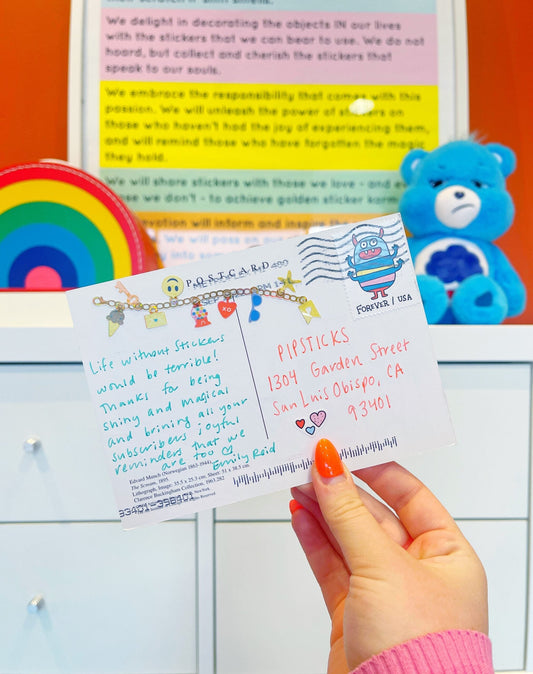 We delight in decorating the objects IN our lives
with the stickers that we can bear to use. We do not
hoard, but collect and cherish the stickers that
speak to our souls.
We embrace the responsibility that comes with this
passion. We will unleash the power of stickers on
those who haven't had the joy of experiencing them,
and will remind those who have forgotten the magic
they hold.
We will share stickers with those we love - and even
those we don't - to achieve golden sticker karma
will inform and inspire the
We will pass on our
POSTCARD
XO
FOREVER | USA
Life without stickers
would be terrible!
Thanks for being
shiny and magical
and brining all your
subscribers joyful
reminders that we
are too
Emily Reid
PIPSTICKS
1304 Garden Street
San Luis Obispo, CA
93401
Edvard Munch (Norwegian 1863-1944)
The Scream, 1895
Lithograph, Image: 35.5 x 25.3 cm Sheet: 51 x 38.5 cm
Clarence Buckingham Collection, 1963.282
93401-398401